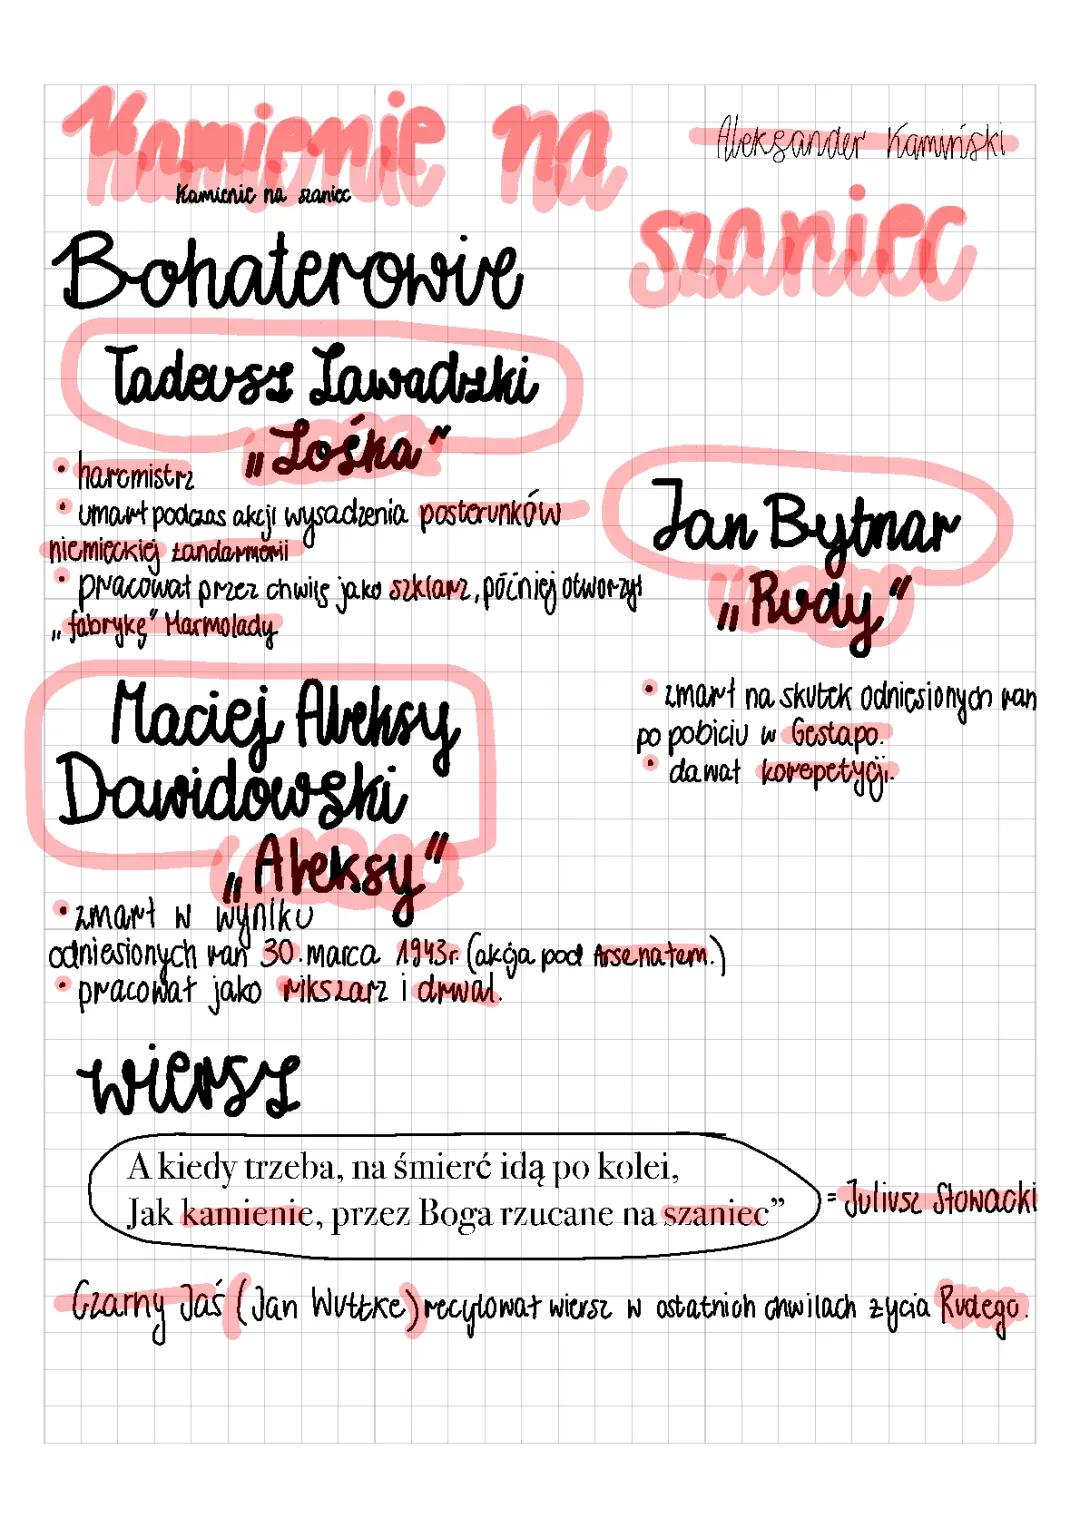 Kamienie na
szaniec
Aleksander Kamiński
Kamienie na szaniec
Bohaterowie
Tadeusz Zawadzki
„Zośka”
• harcmistrz
• umarł podczas akcji wysadzenia posterunków
niemieckiej żandarmerii
• pracował przez chwilę jako szklarz, później otworzył
„fabrykę” Marmolady
Jan Bytnar
„Rudy”
• zmarł na skutek odniesionych ran
po pobiciu w Gestapo.
• dawał korepetycji.
Maciej Aleksy
Dawidowski
„Aleksy”
• zmarł w wyniku
odniesionych ran 30. marca 1943r. (akcja pod Arsenałem.)
• pracował jako rikszarz i drwal.
wiersz
A kiedy trzeba, na śmierć idą po kolei,
Jak kamienie, przez Boga rzucane na szaniec”
= Juliusz Słowacki
Czarny Jaś (Jan Wuttke) recytował wiersz w ostatnich chwilach życia Rudego.